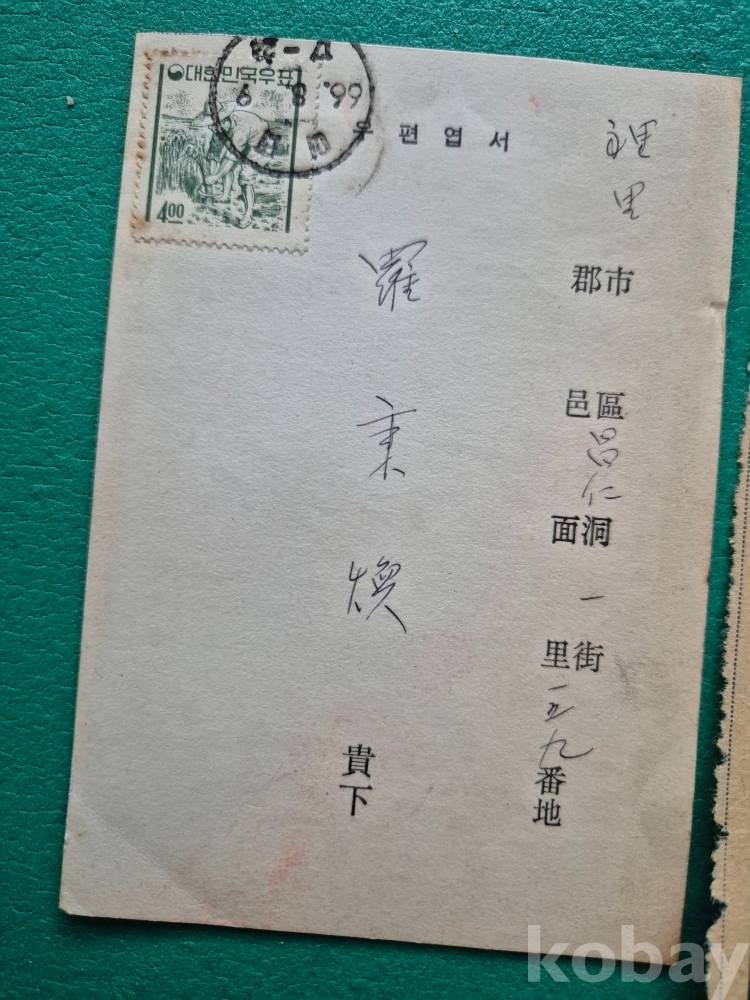 대한민국우표
4.00
우편엽서
裡里
市郡
區邑
昌仁
洞面
一
街里
一五九
番地
羅秉煥
貴下
kobay